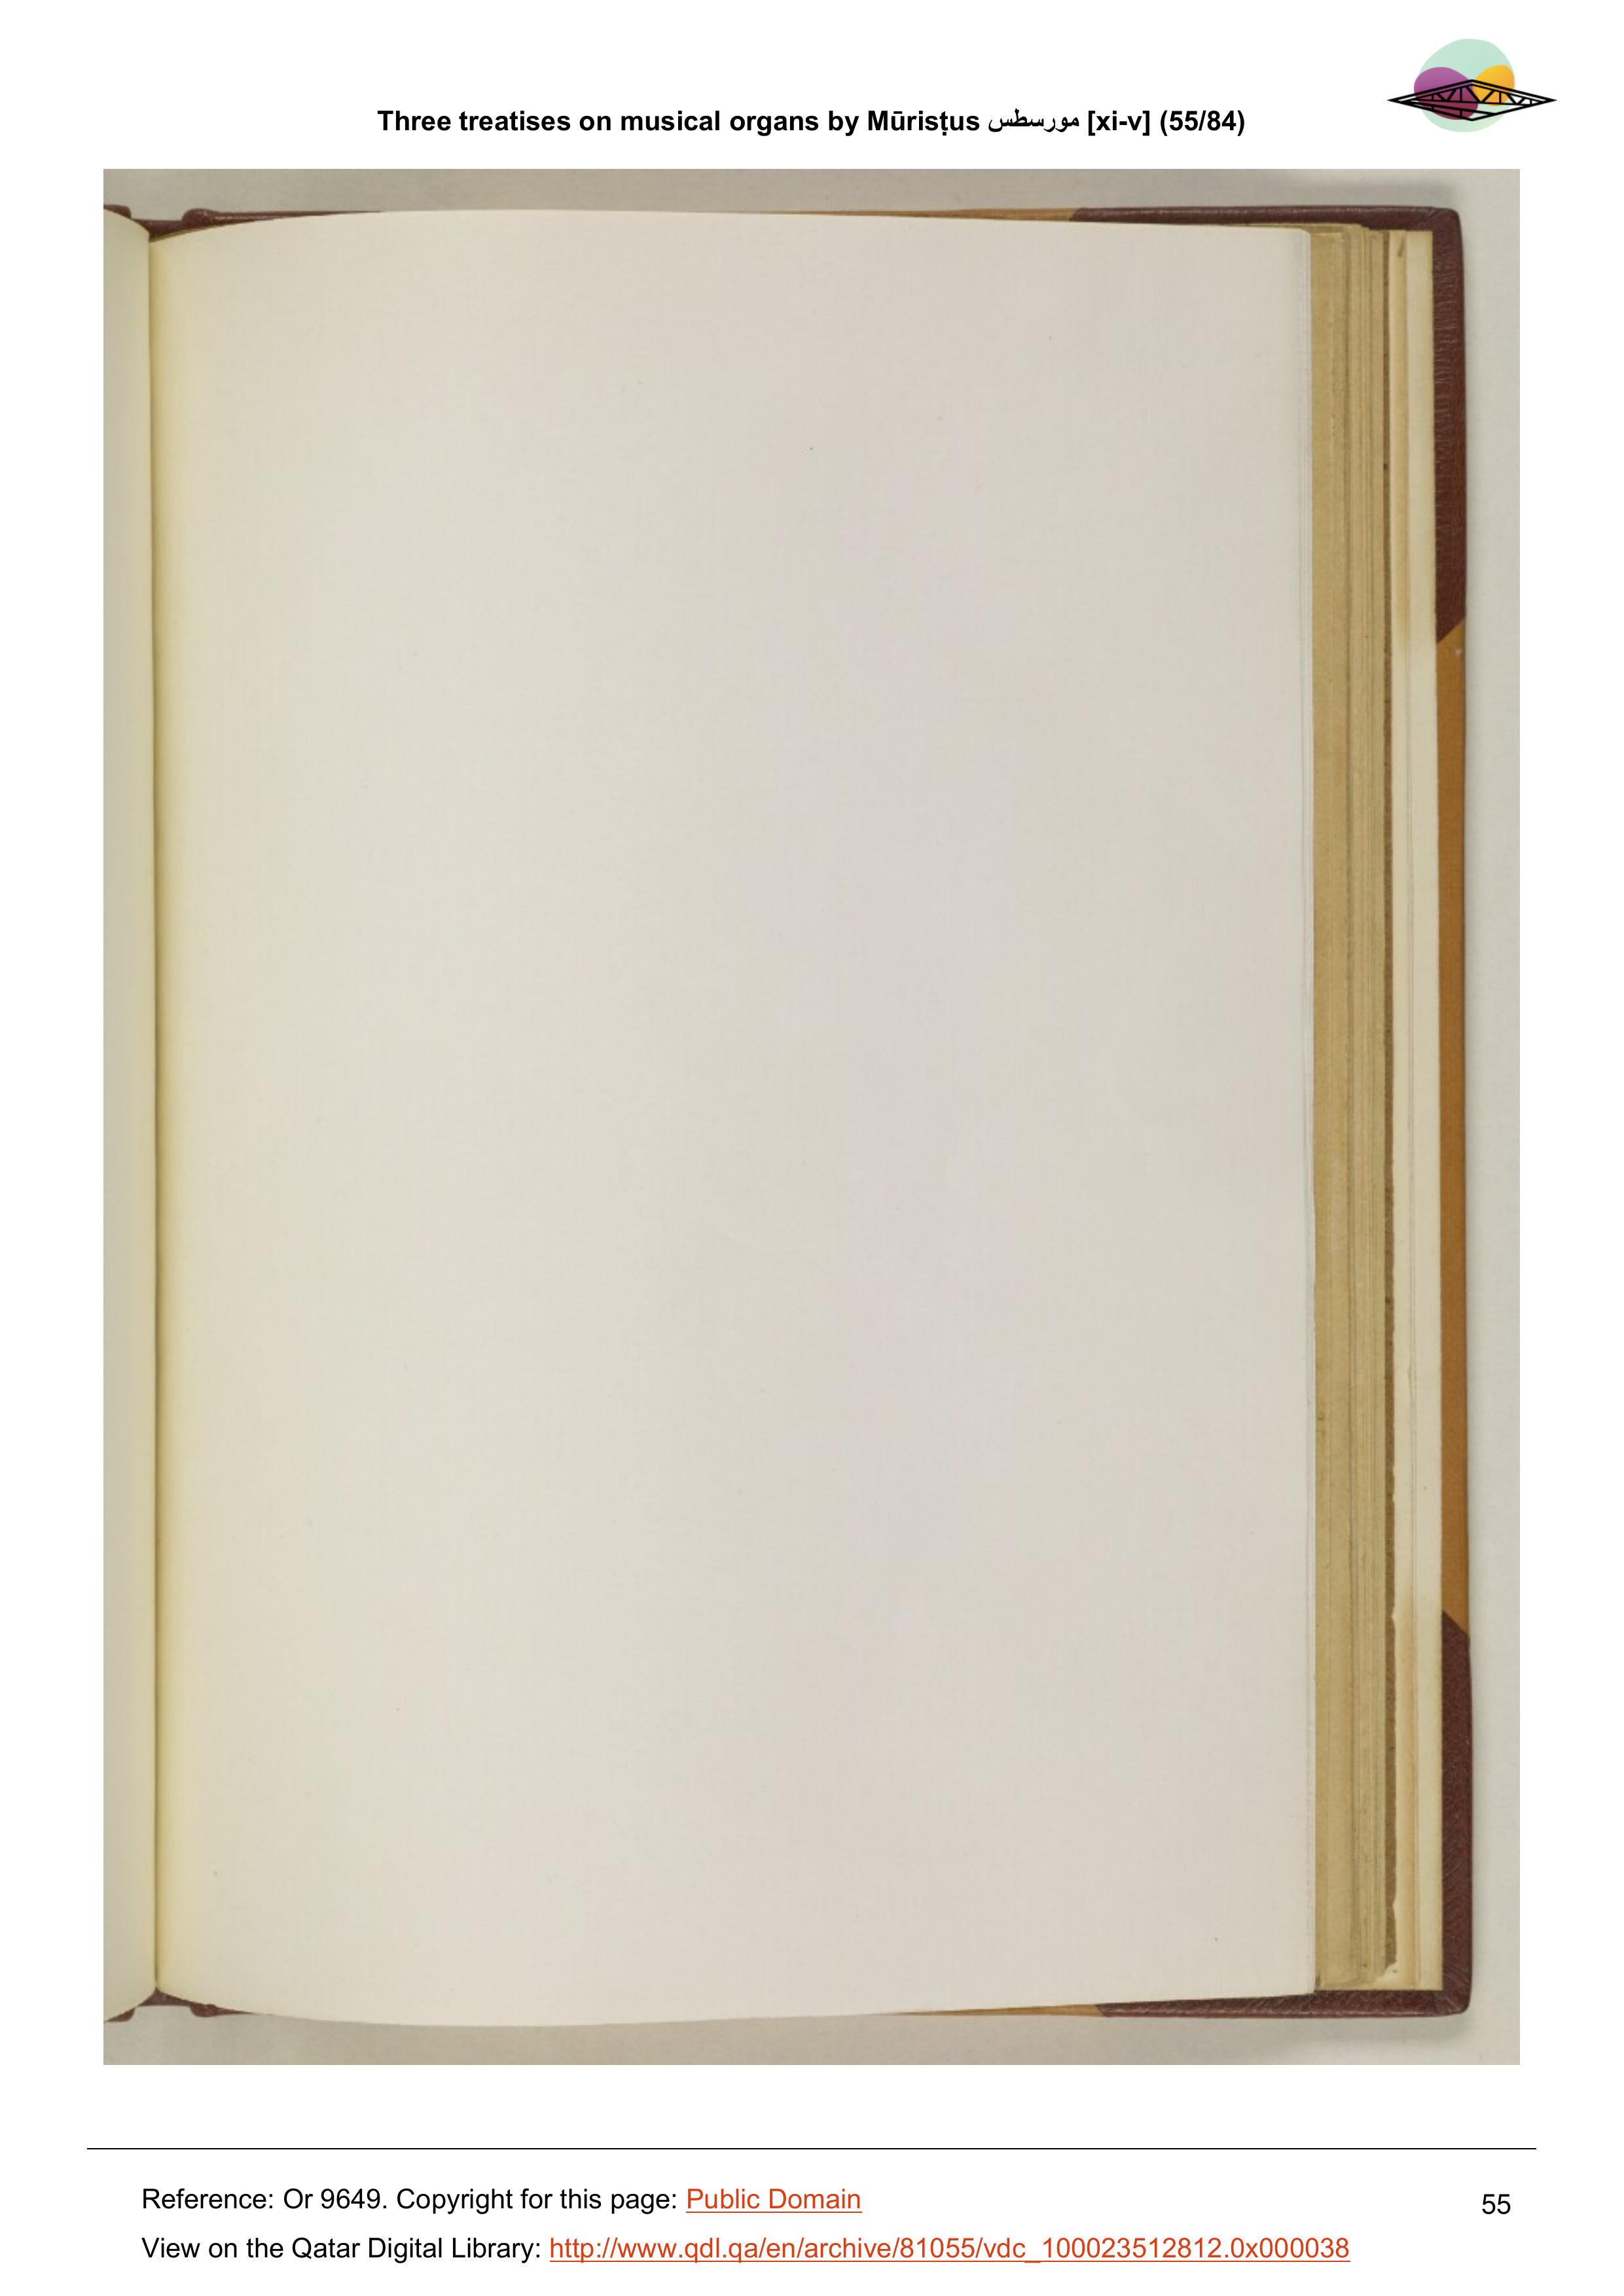 Three treatises on musical organs by Mūrisṭus مورسطس [xi-v] (55/84)
Reference: Or 9649. Copyright for this page: Public Domain
55
View on the Qatar Digital Library: http://www.qdl.qa/en/archive/81055/vdc_100023512812.0x000038